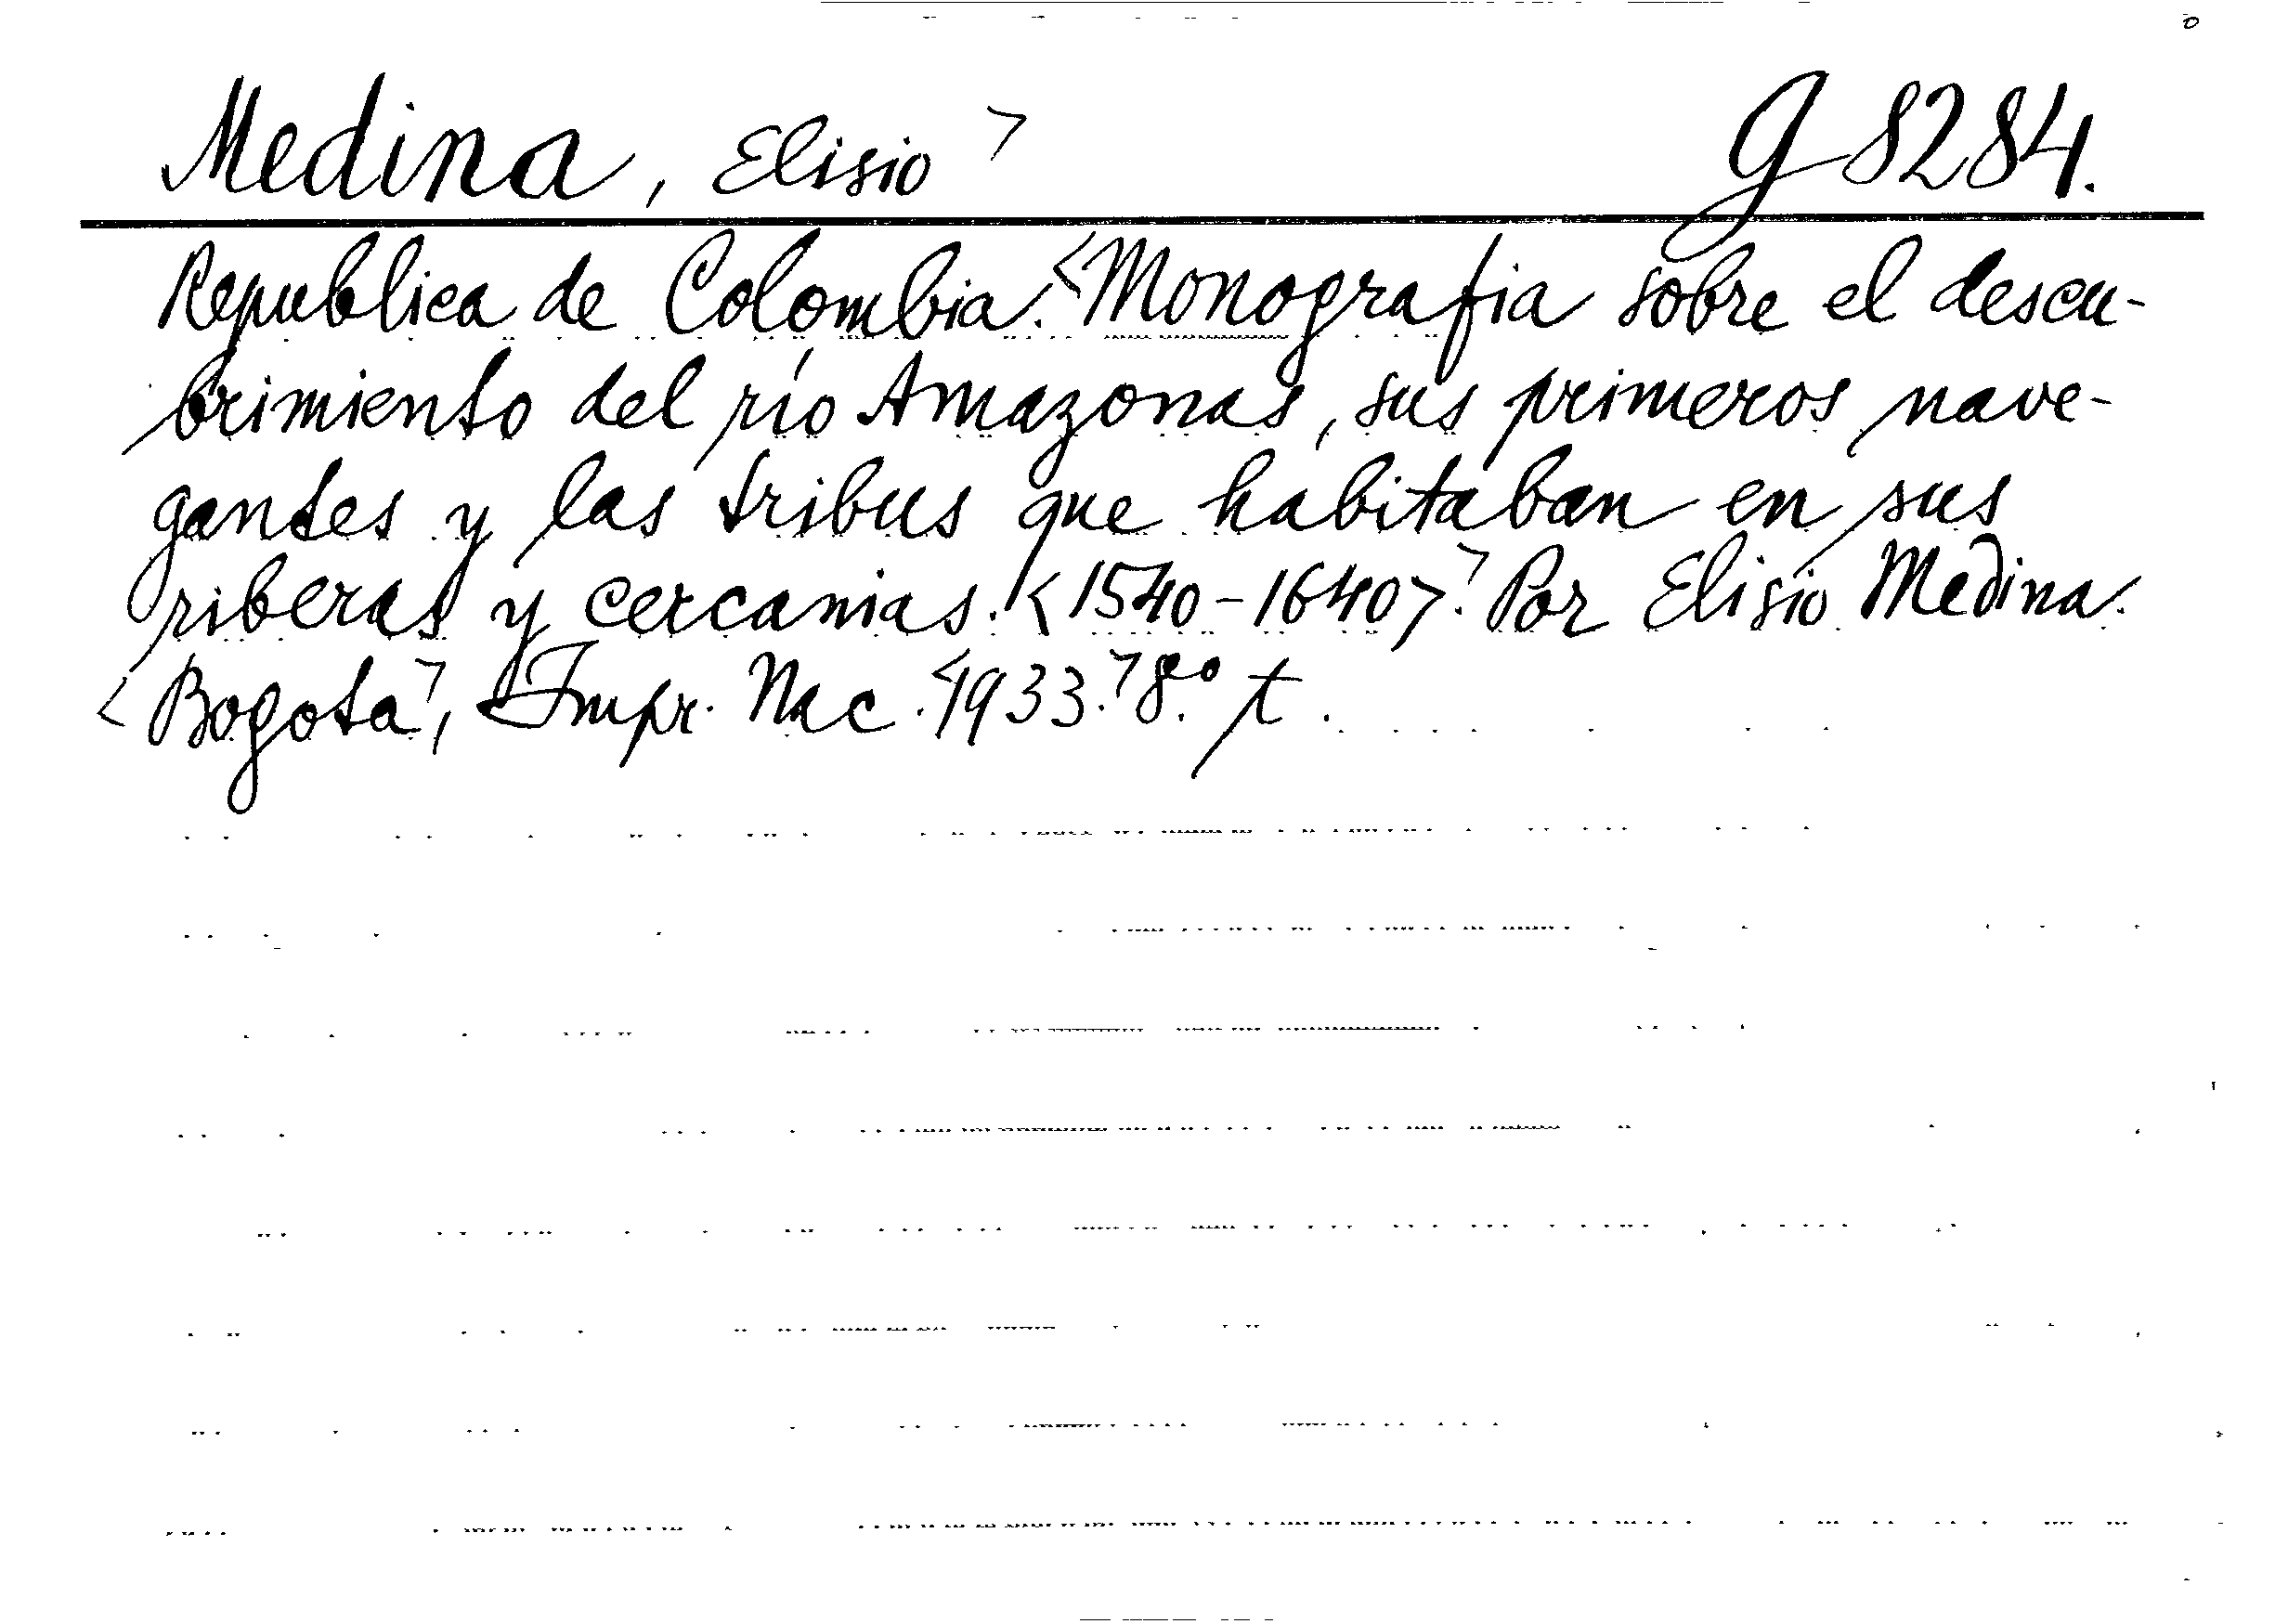 Medina, Elisio> G 8284.
Republica de Colombia. <Monografia sobre el descu-
brimiento del río Amazonas, sus primeros nave-
gantes y las tribus que habitaban en sus
riberas y cercanias. <1540-1640>.> Por Elisio Medina.
<Bogota>, Impr. Nac. <1933.> 8.° t.